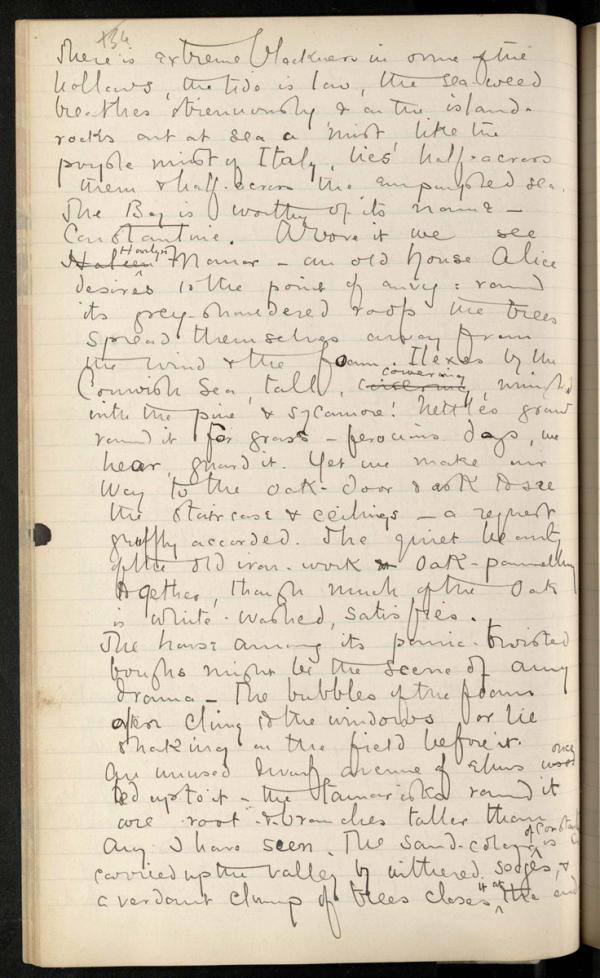 134
There is extreme blackness in some of the
hollows, the tide is low, the sea-weed
breathes strenuously & on the island-
rocks out at sea a mist like the
purple mist of Italy, lies half-across
them & half-across the empurpled sea.
The Bay is worthy of its name –
Constantine. Above it we see
Harlyn
Manor – an old house Alice
desires to the point of envy: round
its grey-shouldered roofs the trees
spread themselves away from
the wind & the foam. Ilexes by the
cowering
Cornish sea, tall, , mingled
with the pine & sycamore! Nettles grow
round it for grass – ferocious dogs, we
hear, guard it. Yet we make our
way to the oak-door & ask to see
the staircase & ceilings – a request
gruffly accorded. The quiet beauty
of the old iron-work & oak-pannelling
together, though much of the oak
is white-washed, satisfies.
The house among its panic-twisted
boughs might be the scene of any
drama – The bubbles of the foam
often cling to the windows or lie
shaking on the field before it.
once
An unused dwarf avenue of elms
led up to it – the tamarisks round it
are root & branches taller than
of Constantine
any I have seen. The sand-colour is
carried up the valley by withered sedges, &
it at
a verdant clump of trees closes the end